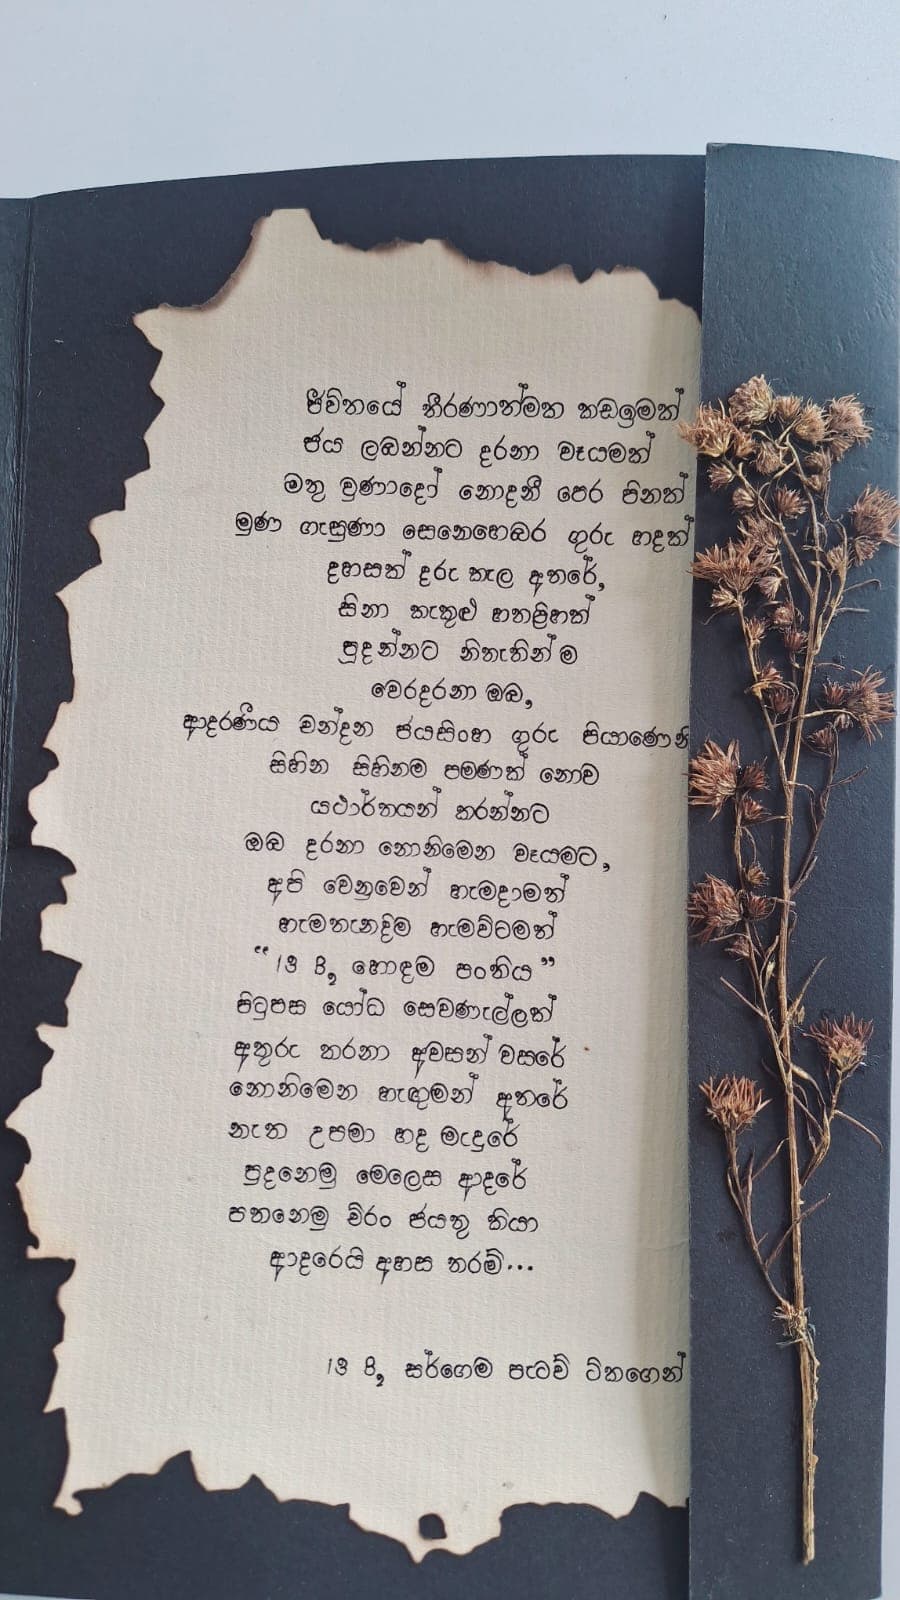 ජීවිතයේ තීරණාත්මක කඩඉමක්
ජය ලබන්නට දරනා වෑයමක්
මතු වුණාදෝ නොදනී පෙර පිනක්
මුණ ගැසුණා සෙනෙහෙබර ගුරු හදක්
දහසක් දරු කැල අතරේ,
සිනා කැකුළු හතළිහක්
පුදන්නට නිතැතින්ම
වෙරදරනා ඔබ,
ආදරණීය චන්දන ජයසිංහ ගුරු පියාණෙනි
සිහින සිහිනම පමණක් නොව
යථාර්තයන් කරන්නට
ඔබ දරනා නොනිමෙන වෑයමට,
අපි වෙනුවෙන් හැමදාමත්
හැමතැනදිම හැමවිටමත්
"13 B, හොඳම පංතිය"
පිටුපස යෝධ සෙවණැල්ලක්
අතුරු කරනා අවසන් වසරේ
නොනිමෙන හැඟුමන් අතරේ
නැත උපමා හද මැදුරේ
පුදනෙමු මෙලෙස ආදරේ
පතනෙමු චිරං ජයතු කියා
ආදරෙයි අහස තරම්...
13 B, සර්ගෙම පැටව් ටිකගෙන්